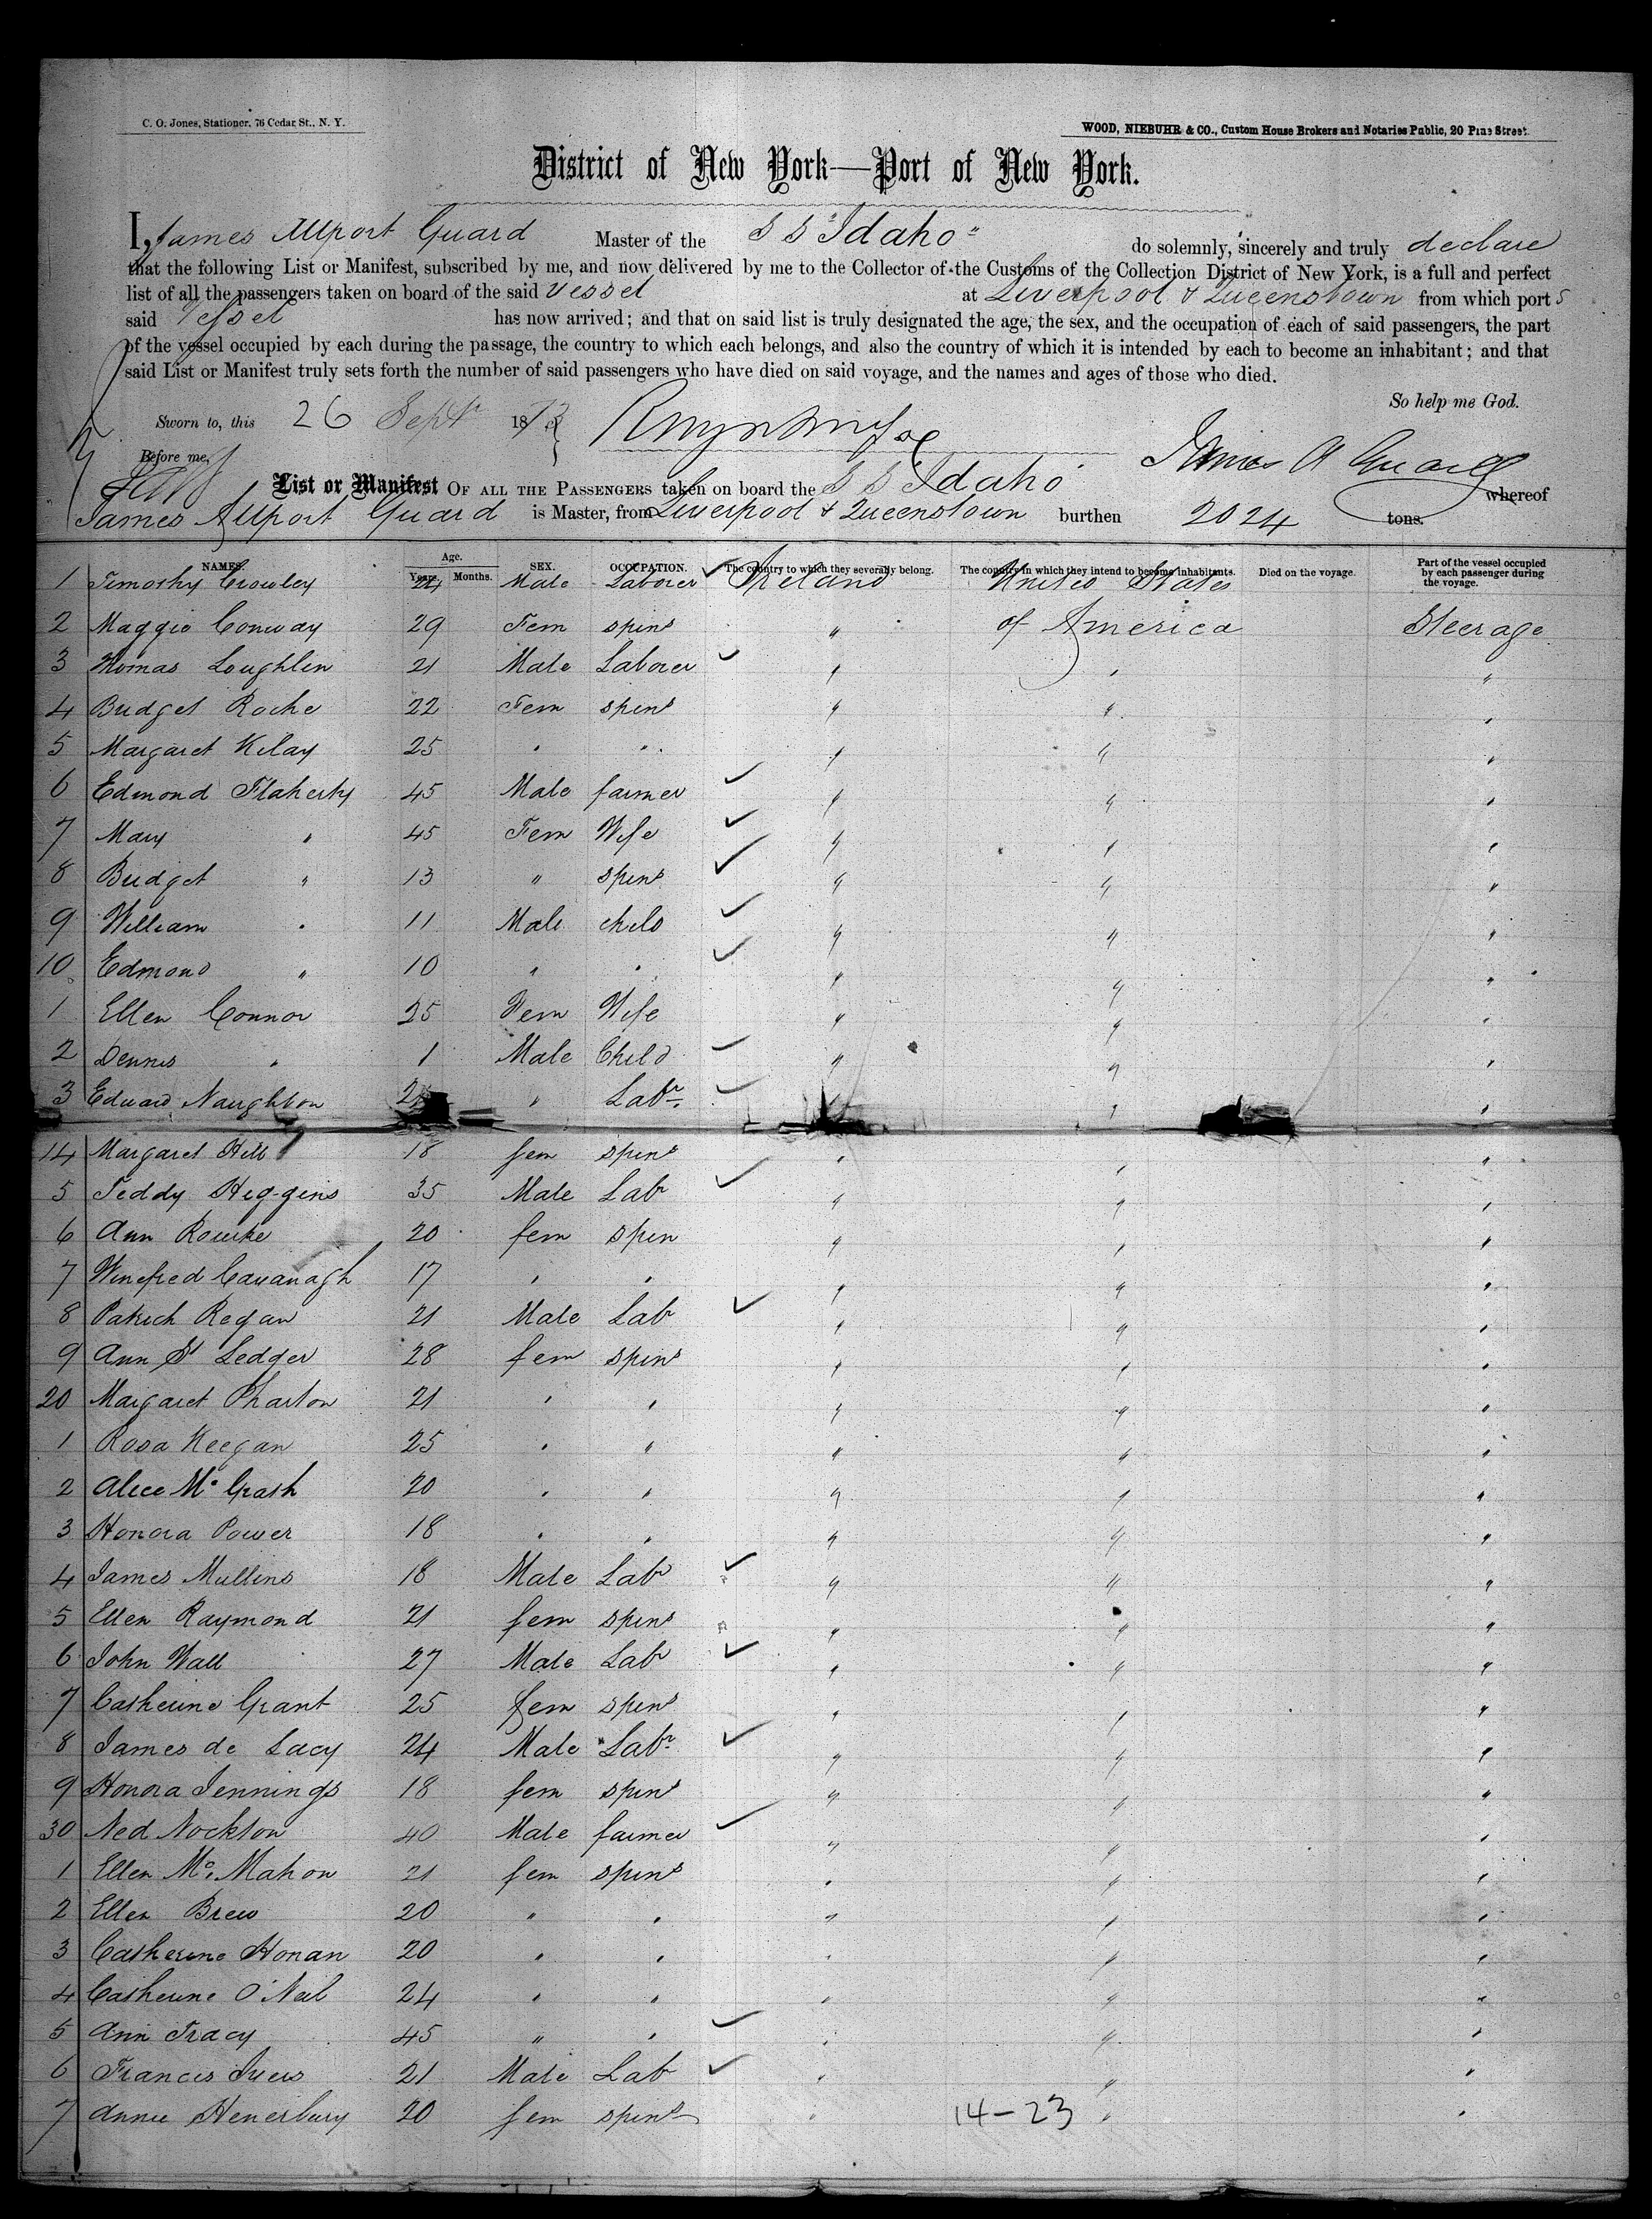 C. O. Jones, Stationer, 76 Cedar St., N. Y.
WOOD, NIEBUHR & CO., Custom House Brokers and Notaries Public, 20 Pine Street.
District of New York—Port of New York.
I, James Allport Guard Master of the S S "Idaho" do solemnly, sincerely and truly declare
that the following List or Manifest, subscribed by me, and now delivered by me to the Collector of the Customs of the Collection District of New York, is a full and perfect
list of all the passengers taken on board of the said Vessel at Liverpool & Queenstown from which ports
said Vessel has now arrived; and that on said list is truly designated the age, the sex, and the occupation of each of said passengers, the part
of the vessel occupied by each during the passage, the country to which each belongs, and also the country of which it is intended by each to become an inhabitant; and that
said List or Manifest truly sets forth the number of said passengers who have died on said voyage, and the names and ages of those who died.
So help me God.
Sworn to, this 26 Sept 1873
Before me,
James A Guard
List or Manifest OF ALL THE PASSENGERS taken on board the S S Idaho whereof
James Allport Guard is Master, from Liverpool & Queenstown burthen 2024 tons.
NAMES. Age. Years. Months. SEX. OCCUPATION. The country to which they severally belong. The country in which they intend to become inhabitants. Died on the voyage. Part of the vessel occupied by each passenger during the voyage.
1 Timothy Crowley 24 Male Laborer Ireland United States
2 Maggie Conway 29 Fem spins " of America Steerage
3 Thomas Loughlin 21 Male Laborer " " "
4 Bridget Roche 22 Fem spins " " "
5 Margaret Kilay 25 " " " " "
6 Edmond Flaherty 45 Male farmer " " "
7 Mary " 45 Fem Wife " " "
8 Bridget " 13 " spins " " "
9 William " 11 Male child " " "
10 Edmond " 10 " " " " "
1 Ellen Connor 25 Fem Wife " " "
2 Dennis " 1 Male Child " " "
3 Edward Naughton Labr. " "
14 Margaret Hill 18 fem spins " " "
5 Teddy Higgins 35 Male Labr " " "
6 Ann Rourke 20 fem spin " " "
7 Winefred Cavanagh 17 " " " " "
8 Patrick Regan 21 Male Lab " " "
9 Ann St Ledger 28 fem spins " " "
20 Margaret Pharton 21 " " " " "
1 Rosa Keegan 25 " " " " "
2 Alice Mc Grath 20 " " " " "
3 Honora Power 18 " " " " "
4 James Mullins 18 Male Labr " " "
5 Ellen Raymond 21 fem spins " " "
6 John Wall 27 Male Labr " " "
7 Catherine Grant 25 fem spins " " "
8 James de Lacy 24 Male Labr " " "
9 Honora Jennings 18 fem spins " " "
30 Ned Nockton 40 Male farmer " " "
1 Ellen Mc Mahon 21 fem spins " " "
2 Ellen Brew 20 " " " " "
3 Catherine Honan 20 " " " " "
4 Catherine O'Neil 24 " " " " "
5 Ann Tracy 45 " " " " "
6 Francis Ivers 21 Male Lab " " "
7 Annie Henerbury 20 fem spins " " "
14-23